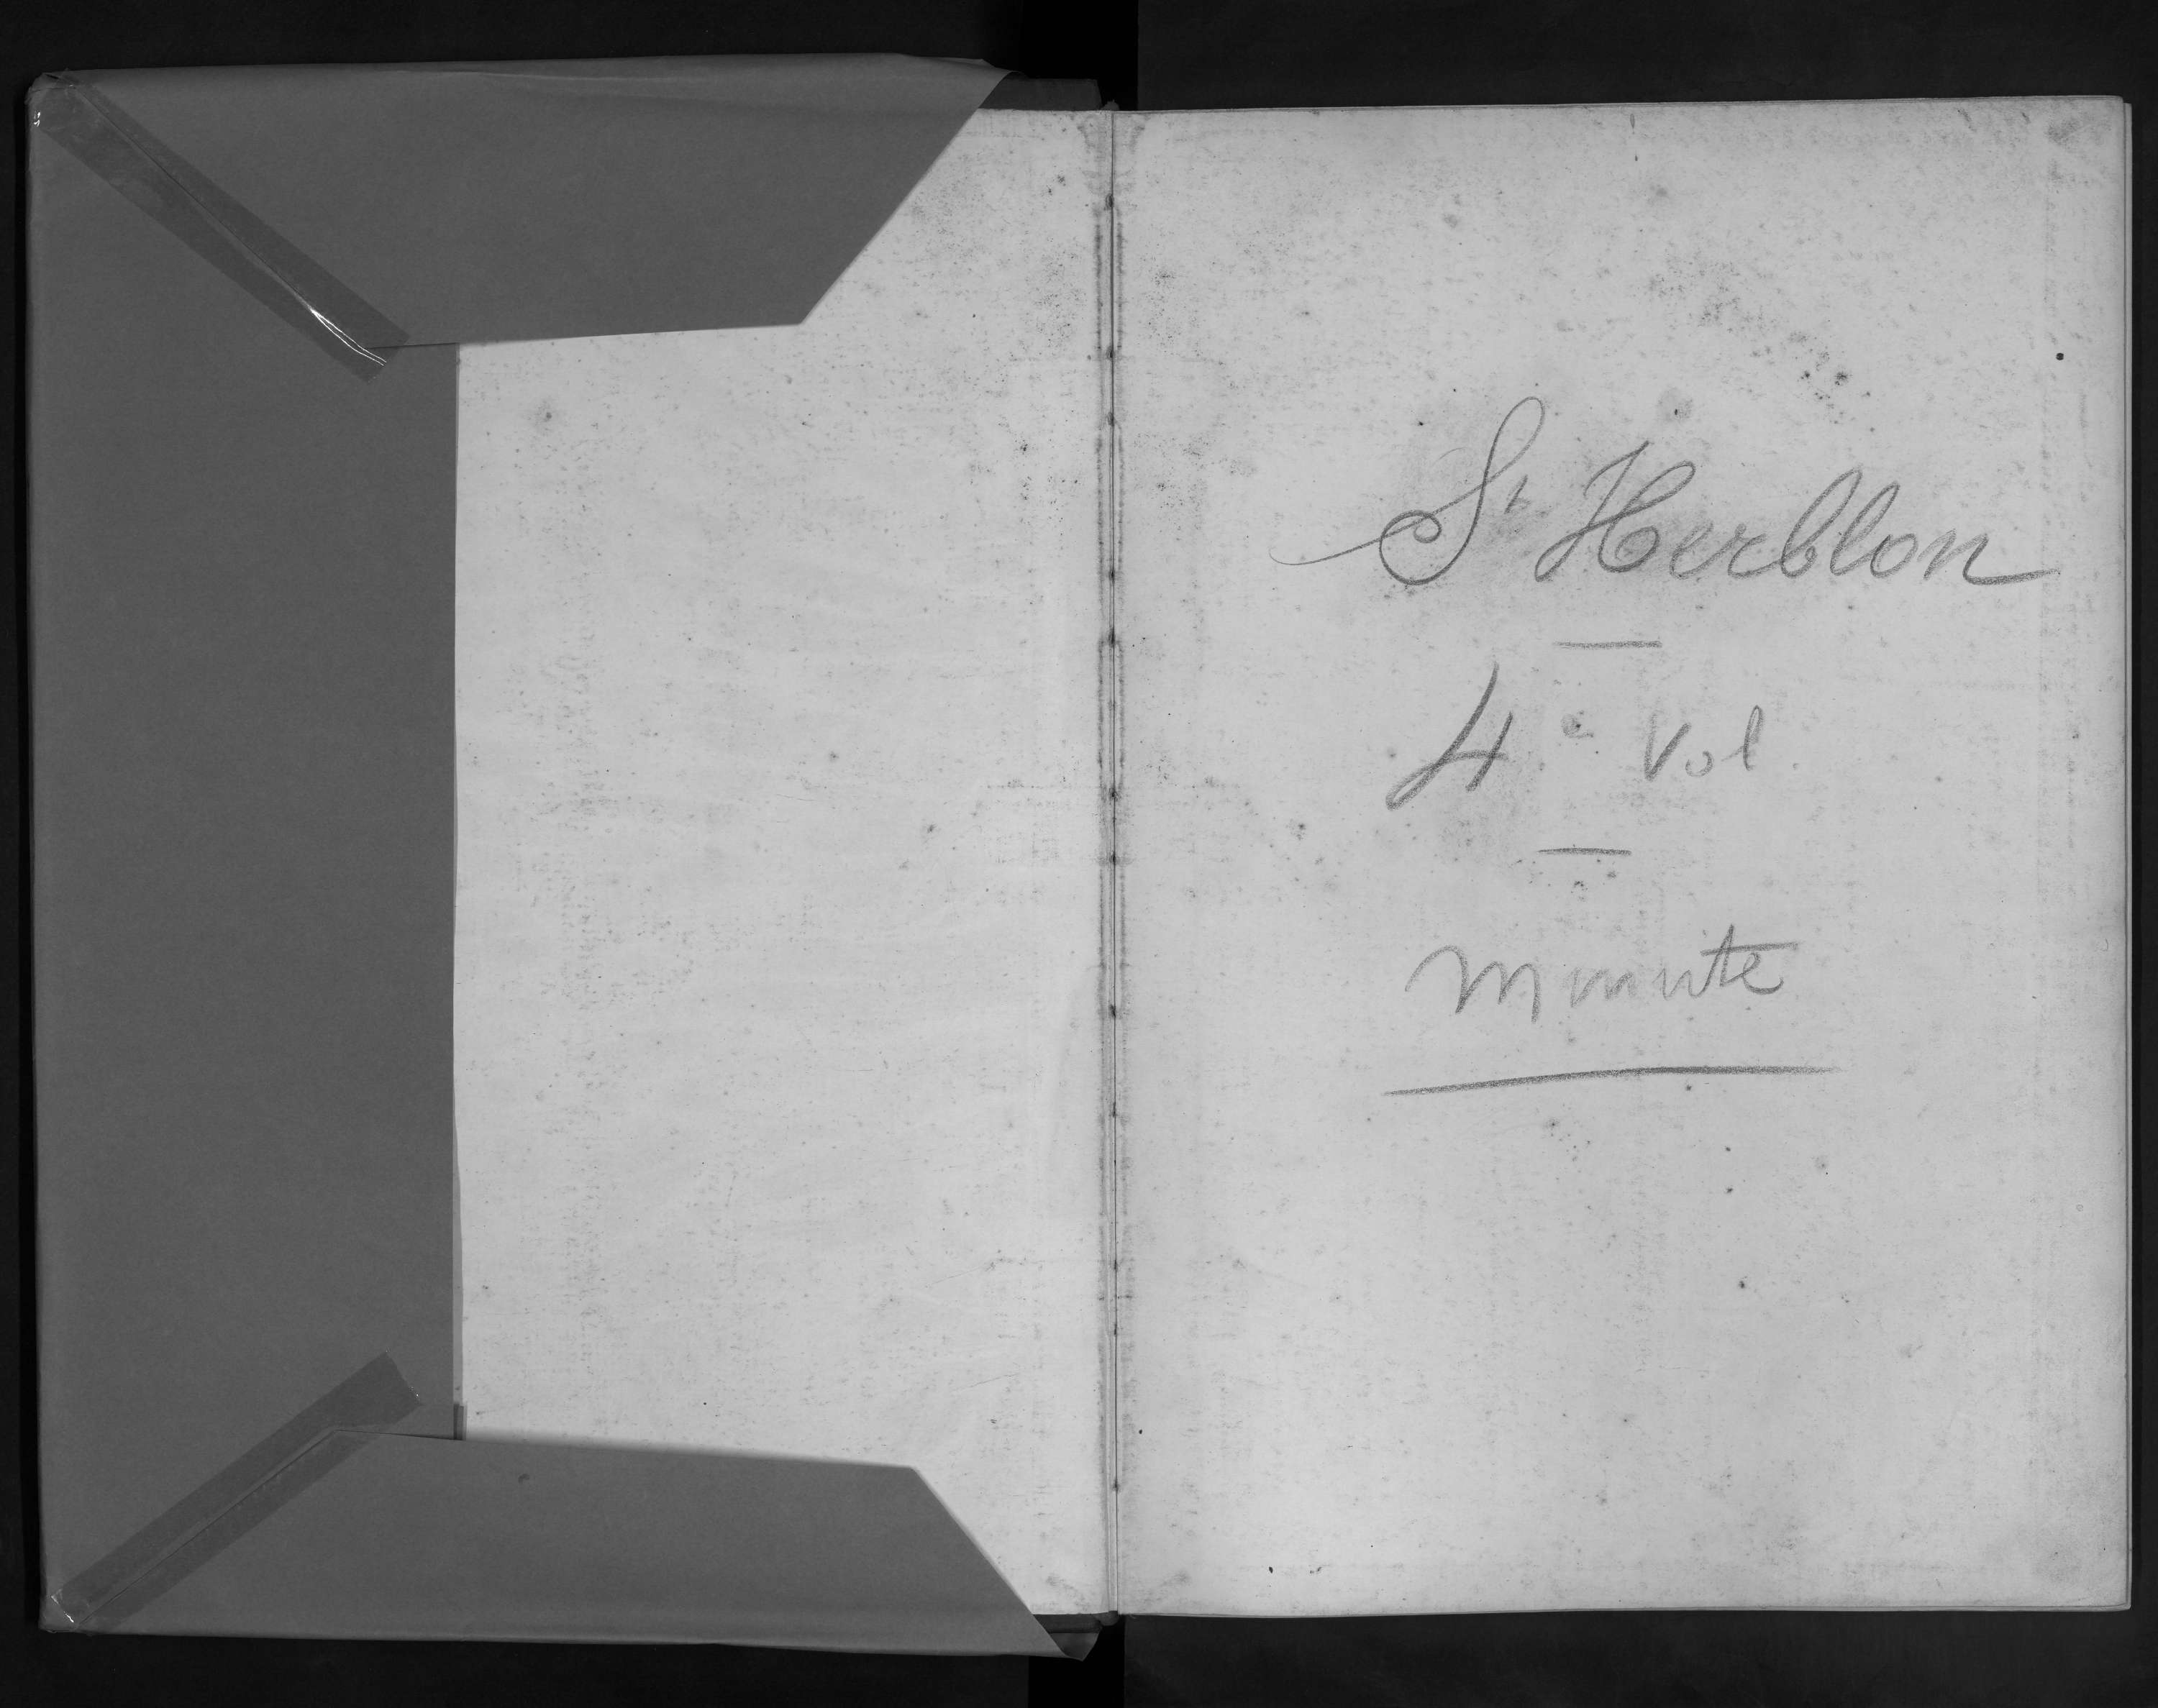 St Herblon
4e Vol.
Minute